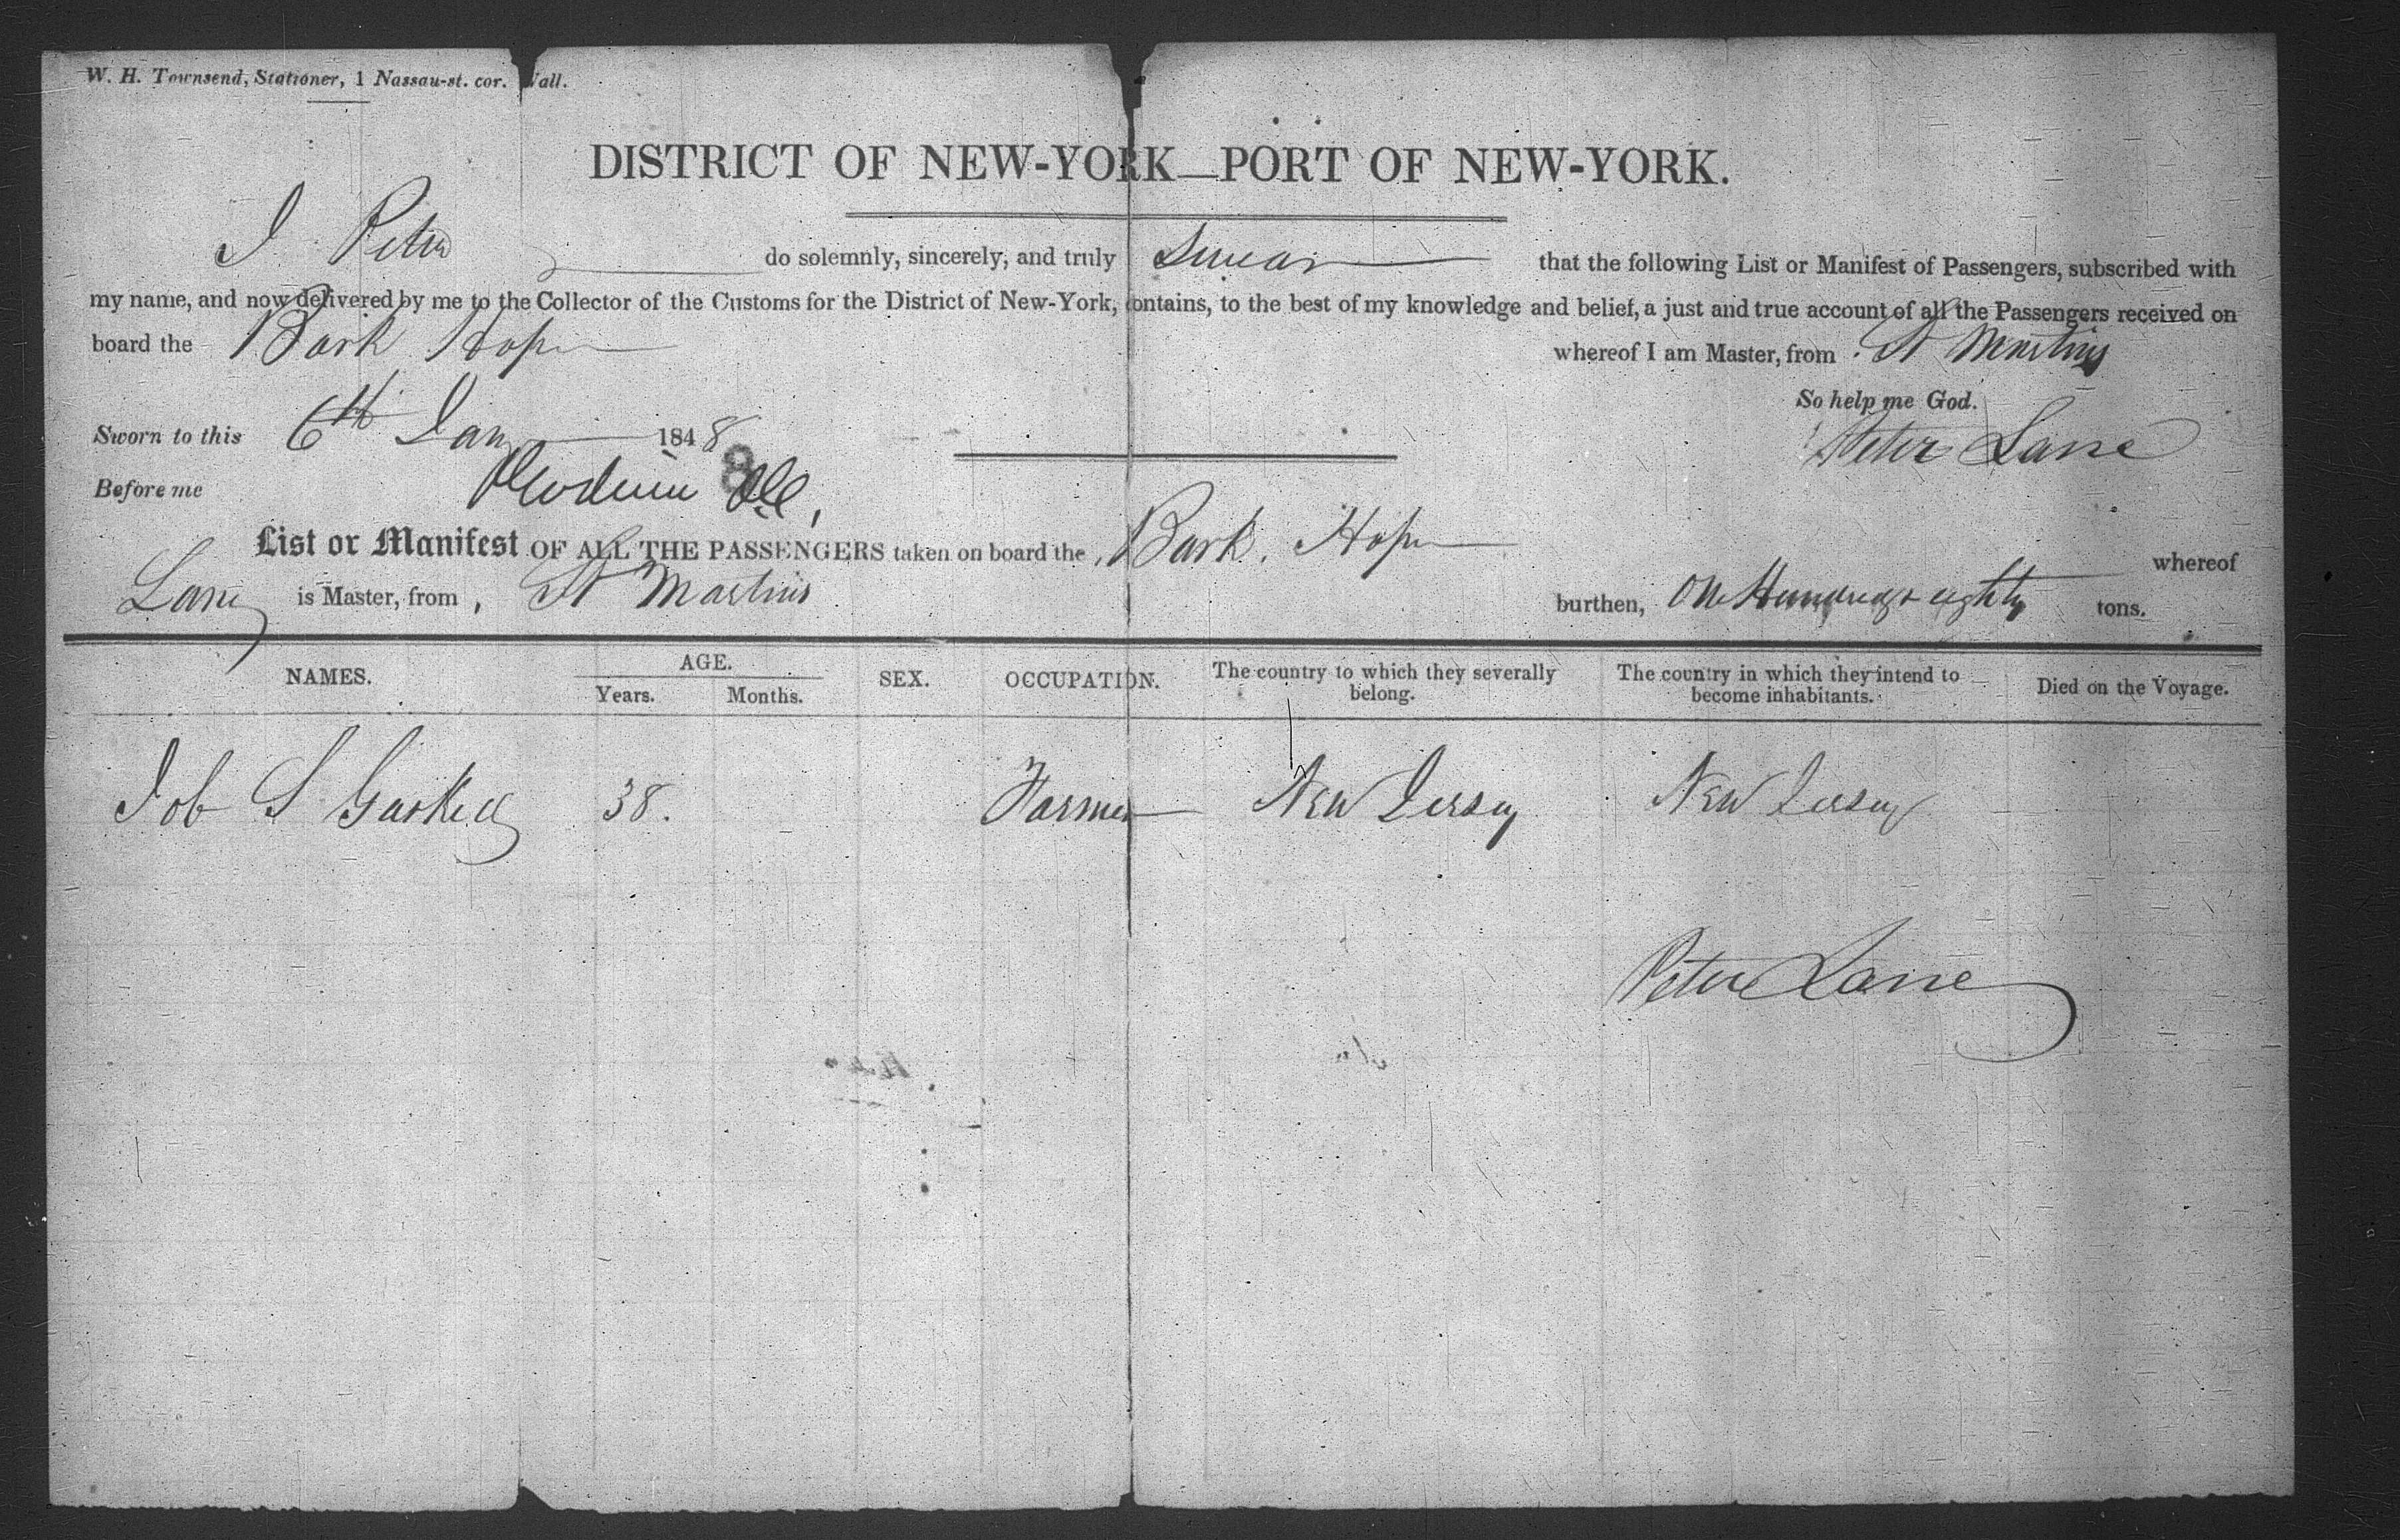 W. H. Townsend, Stationer, 1 Nassau-st. cor. Wall.
DISTRICT OF NEW-YORK—PORT OF NEW-YORK.
I Peter do solemnly, sincerely, and truly Swear that the following List or Manifest of Passengers, subscribed with
my name, and now delivered by me to the Collector of the Customs for the District of New-York, contains, to the best of my knowledge and belief, a just and true account of all the Passengers received on
board the Bark Hope whereof I am Master, from St Martins
So help me God.
Sworn to this 6th Jany 1848 Peter Lane
8
Before me
List or Manifest OF ALL THE PASSENGERS taken on board the Bark Hope whereof
Lane is Master, from St Martins burthen, One Hundred & eighty tons.
NAMES. AGE. SEX. OCCUPATION. The country to which they severally belong. The country in which they intend to become inhabitants. Died on the Voyage.
Years. Months.
Job S Gaskell 38. Farmer New Jersey New Jersey
Peter Lane